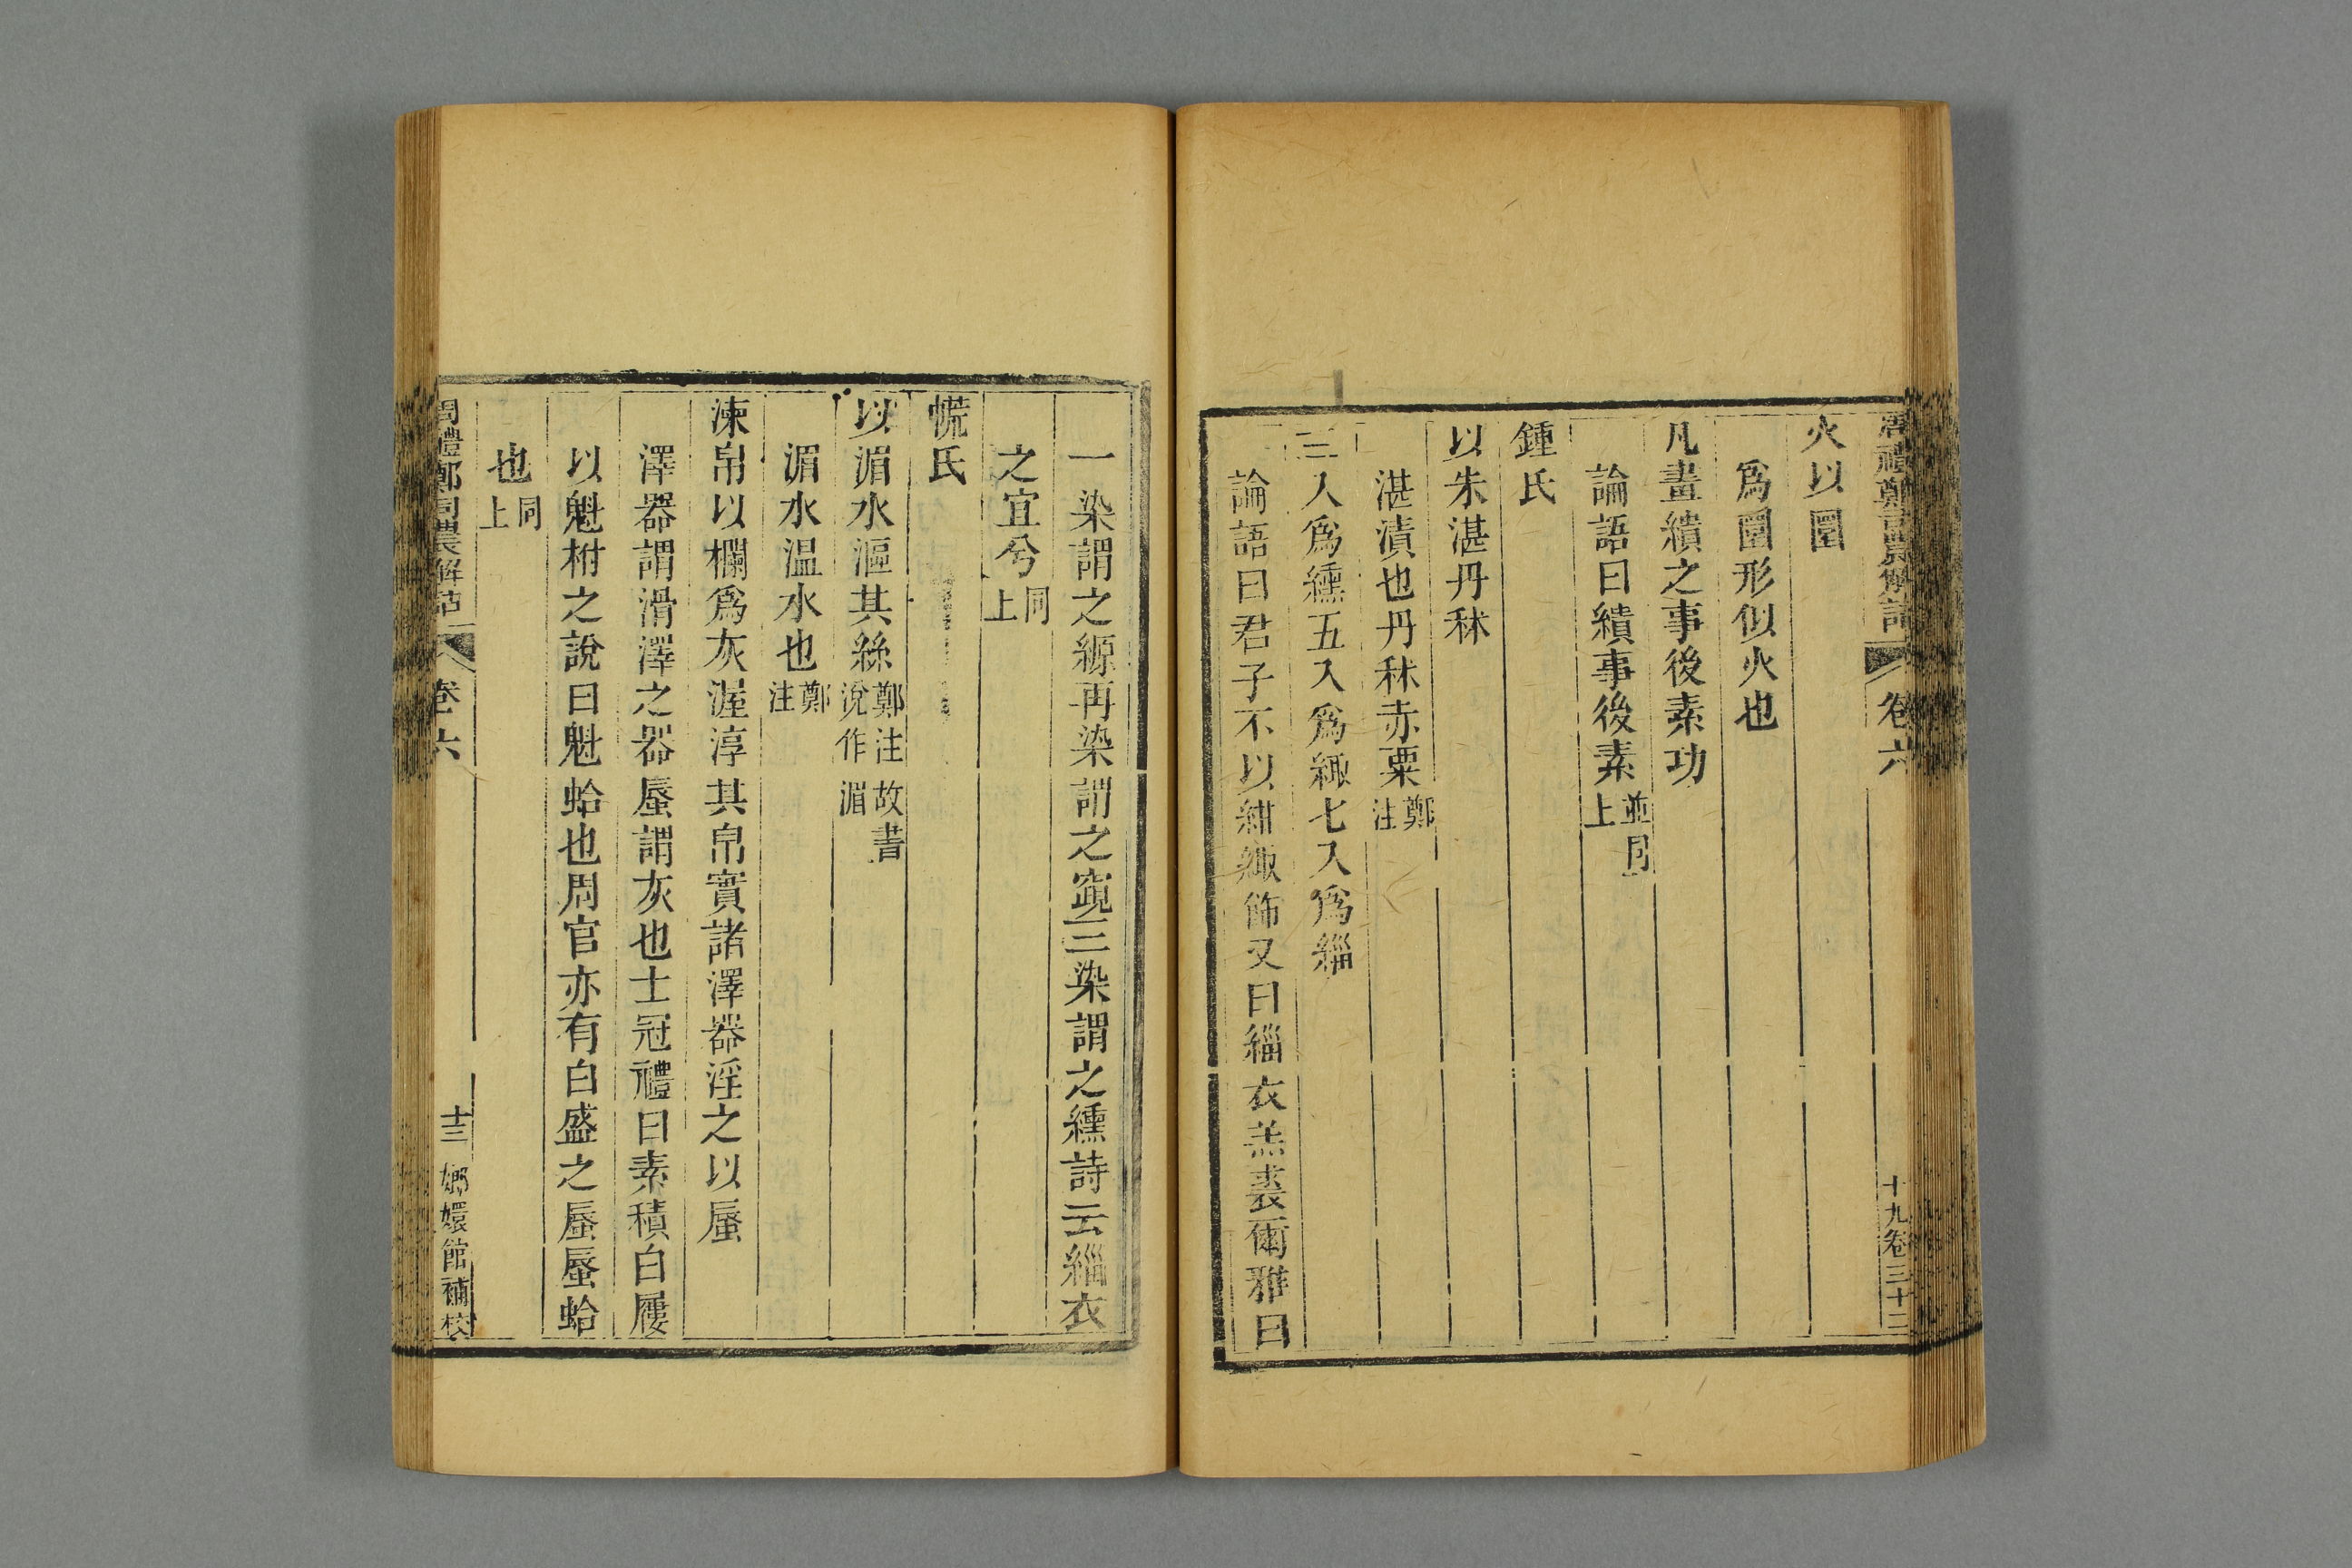 周禮鄭司農解詁 卷六 十九卷三十三
火以圜
爲圜形似火也
凡畫繢之事後素功
論語曰繢事後素並同上
鍾氏
以朱湛丹秫
湛漬也丹秫赤粟鄭注
三入爲纁五入爲緅七入爲緇
論語曰君子不以紺緅飾又曰緇衣羔裘爾雅曰
一染謂之縓再染謂之窺三染謂之纁詩云緇衣
之宜兮同上
㡆氏
以湄水漚其絲鄭注故書涗作湄
湄水温水也鄭注
湅帛以欄爲灰渥淳其帛實諸澤器淫之以蜃
澤器謂滑澤之器蜃謂灰也士冠禮曰素積白屨
以魁柎之說曰魁蛤也周官亦有白盛之蜃蜃蛤
也同上
周禮鄭司農解詁 卷六 十三 嫏嬛館補校